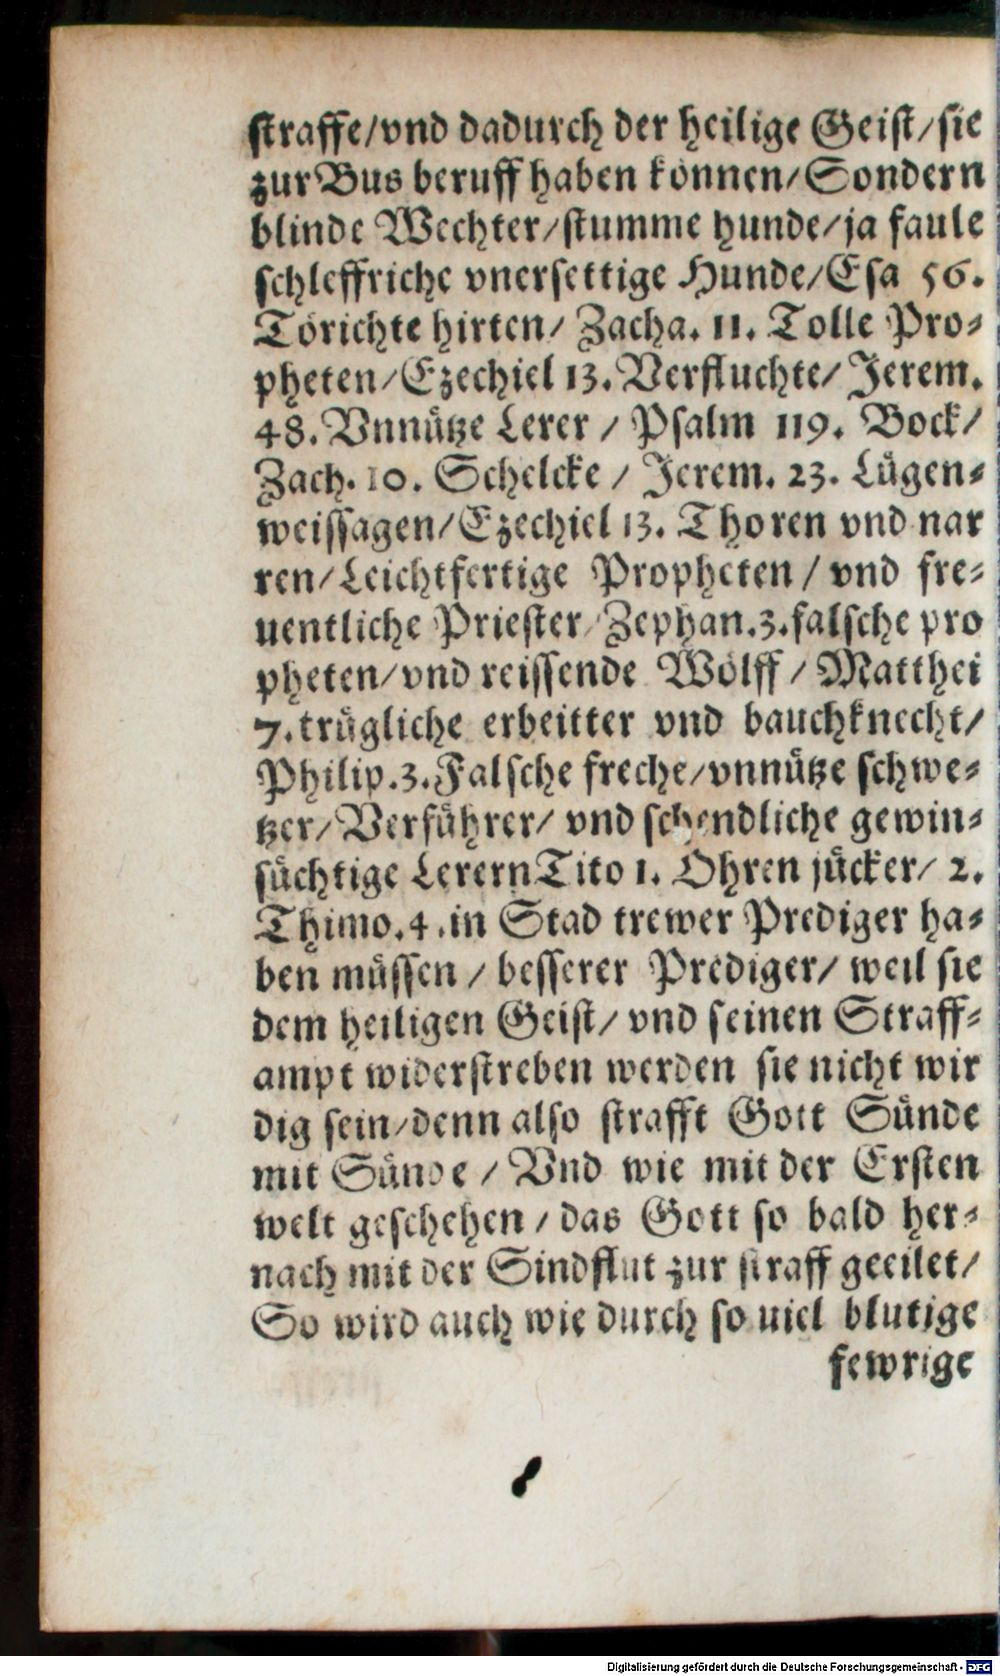 straffe/vnd dadurch der heilige Geist/sie
zur Bus beruff haben können/Sondern
blinde Wechter/stumme hunde/ja faule
schleffriche vnersettige Hunde/Esa 56.
Törichte hirten/ Zacha. 11. Tolle Pro⸗
pheten/Ezechiel 13. Verfluchte/ Jerem.
48. Vnnütze Lerer / Psalm 119. Bock/
Zach. 10. Schelcke / Jerem. 23. Lügen⸗
weissagen/Ezechiel 13. Thoren vnd nar
ren/Leichtfertige Propheten / vnd fre⸗
uentliche Priester/Zephan.3.falsche pro
pheten/vnd reissende Wölff / Matthei
7.trügliche erbeitter vnd bauchknecht/
Philip.3.Falsche freche/vnnütze schwe⸗
tzer/Verführer/ vnd schendliche gewin⸗
süchtige Lerern Tito 1. Ohren jücker/ 2.
Thimo.4.in Stad trewer Prediger ha⸗
ben müssen / besserer Prediger/ weil sie
dem heiligen Geist/ vnd seinen Straff⸗
ampt widerstreben werden sie nicht wir
dig sein/denn also strafft Gott Sünde
mit Sünde / Vnd wie mit der Ersten
welt geschehen / das Gott so bald her⸗
nach mit der Sindflut zur straff geeilet/
So wird auch wie durch so uiel blutige
fewrige
Digitalisierung gefördert durch die Deutsche Forschungsgemeinschaft - DFG